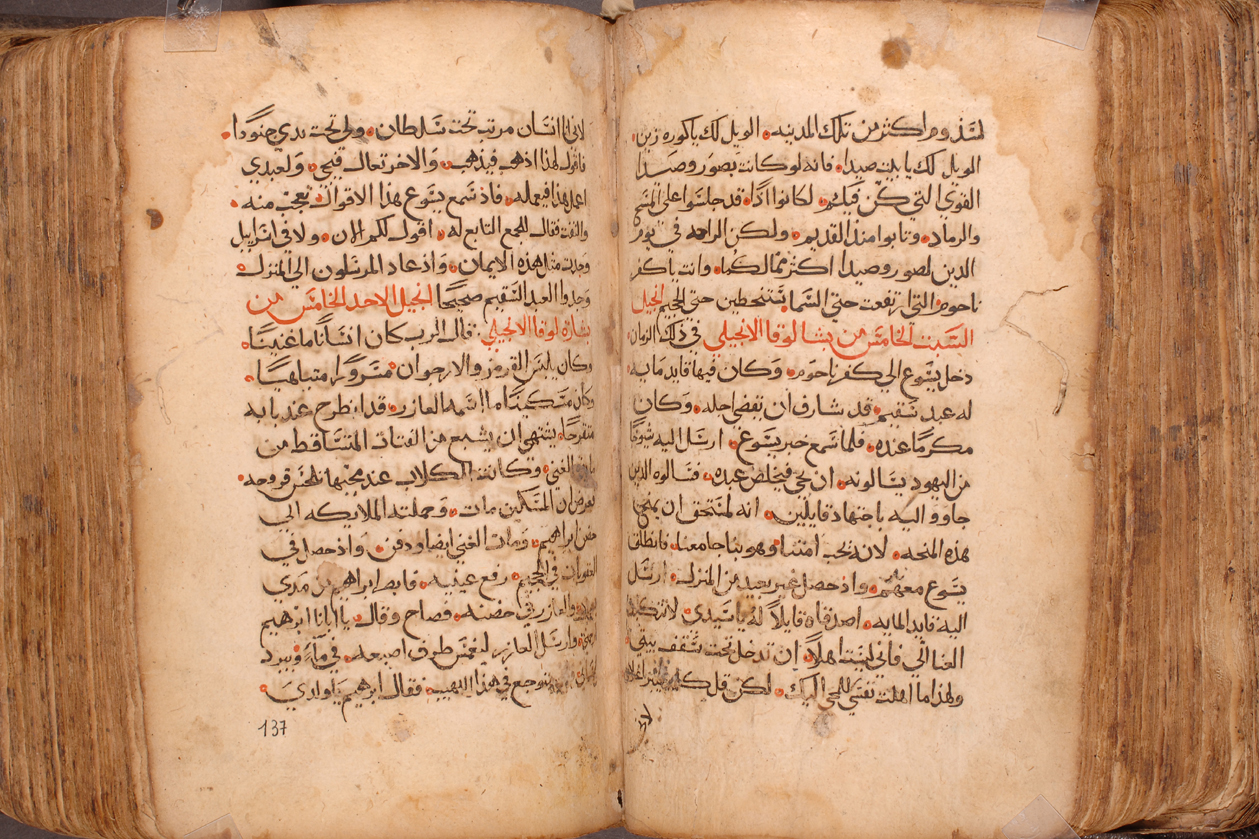 لسذوم اكثر من تلك المدينه الويل لك ياكوره زين
الويل لك يا بيت صيدا فانه لو كانت بصور وصيدا
القوي التي كن فيكم لكانوا اذا قد جلسوا علي المسح
والرماد وتابوا منذ القديم ولكن الراحه في يوم
الدين لصور وصيدا اكثر مما لكما وانت يا كفر
ناحوم التي ارتفعت حتي السما ستنحطين حتي الجحيم انجيل
السبت الخامس من بشا لوقا الانجيلي في ذلك الزمان
دخل يسوع الي كفر ناحوم وكان فيها قايد مايه
له عبد سقيم قد شارف ان يقضي اجله وكان
مكرما عنده فلما سمع خبر يسوع ارسل اليه شيوخا
من اليهود يسالونه ان يجي فيخلص عبده فسالوه الذين
جاووا اليه باجتهاد قايلين انه لمستحق ان يمنح
هذه المنحه لانه يحب امتنا وهو بنا جامعنا فانطلق
يسوع معهم واذ حصل غير بعيد من المنزل ارسل
اليه قايد المايه اصدقاه قايلا له يا سيدي لا تتكبد
العنا الي فاني لست اهلا ان تدخل تحت سقف بيتي
ولهذا ما اهلت نفسي للمجي اليك لكن قل كلمه
لاني انا انسان مرتب تحت سلطان ولي تحت يدي جنودا
فاقول لهذا اذهب فيذهب والاخر تعال فيجي ولعبدي
اعمل هذا فيعمله فاذ سمع يسوع هذا الاقوال تعجب منه
والتفت فقال للجمع التابع له اقول لكم الان ولا في اسراييل
وجدت مثل هذه الايمان واذ عاد المرسلون الي المنزل
وجدوا العبد السقيم صحيحا انجيل الاحد الخامس من
بشاره لوقا الانجيلي قال الرب كان انسانا ما غنيا
وكان يلبس القرمز والارجوان مسرورا متباهيا
وكان مسكينا ما اسمه العازر قد انطرح عند بابه
متقرحا يشتهي ان يشبع من الفتات المتساقط من
الغني وكانت الكلاب عند مجيها تلحس قروحه
فعرض ان المسكين مات وحملته الملايكه الي
حضن ابراهيم ومات الغني ايضا ودفن واذ حصل في
العذاب في الجحيم رفع عينيه فابصر ابراهيم من مدي
والعازر في حضنه فصاح وقال يا ابانا ابرهيم
وارسل العازر ليغمس طرف اصبعه في ماء ويبرد
متوجع في هذا اللهيب فقال ابرهيم يا ولدي
137